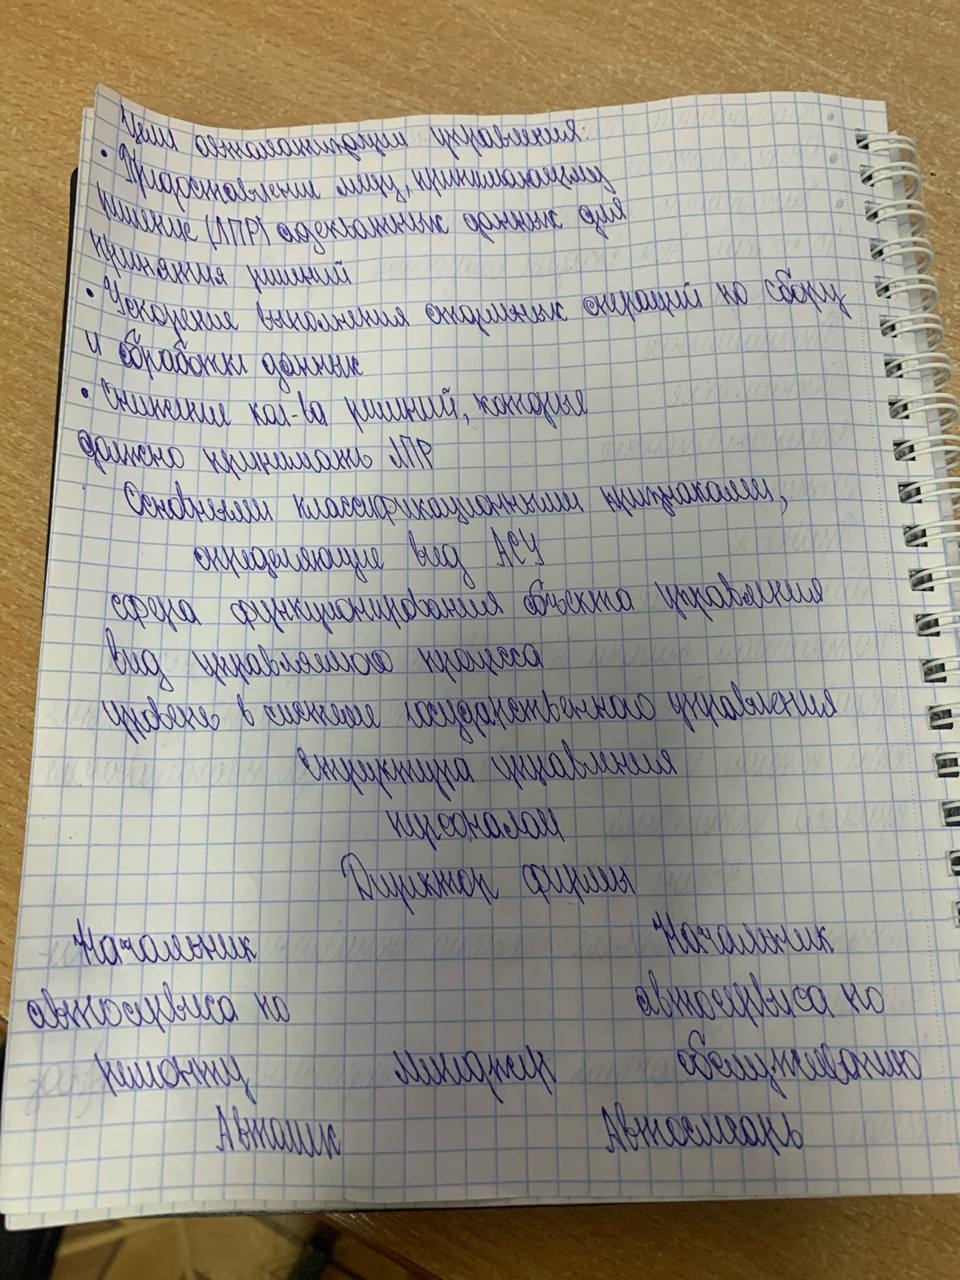 Цели автоматизации управления:
• Предоставление лицу, принимающему
решение (ЛПР) адекватных данных для
принятия решений
• Ускорение выполнения отдельных операций по сбору
и обработки данных
• Снижение кол-ва решений, которые
должно принимать ЛПР
Основными классификационными признаками,
определяющие вид АСУ
сфера функционирования объекта управления
вид управляемого процесса
уровень в системе государственного управления
Структура управления
персоналом
Директор фирмы
Начальник Начальник
автосервиса по автосервиса по
ремонту менеджер обслуживанию
Автомех Автослесарь